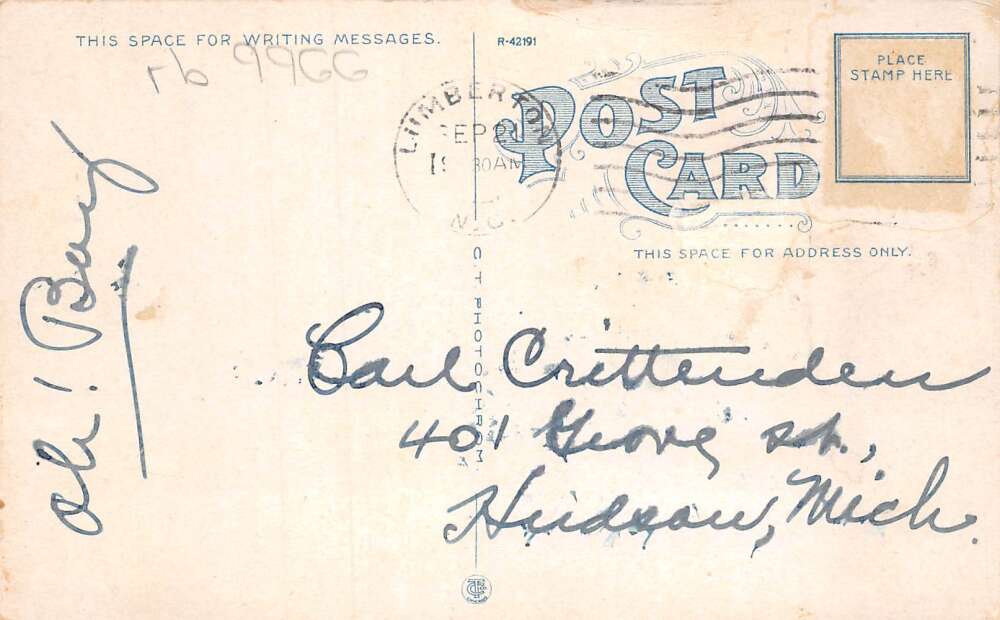 THIS SPACE FOR WRITING MESSAGES.
R-42191
9966
LUMBERTON
SEP 2
30AM
N.C.
POST
CARD
PLACE
STAMP HERE
THIS SPACE FOR ADDRESS ONLY.
C.T. PHOTOCHROM
Oh! Boy
Carl Crittenden
401 Grove St.,
Hudson, Mich.